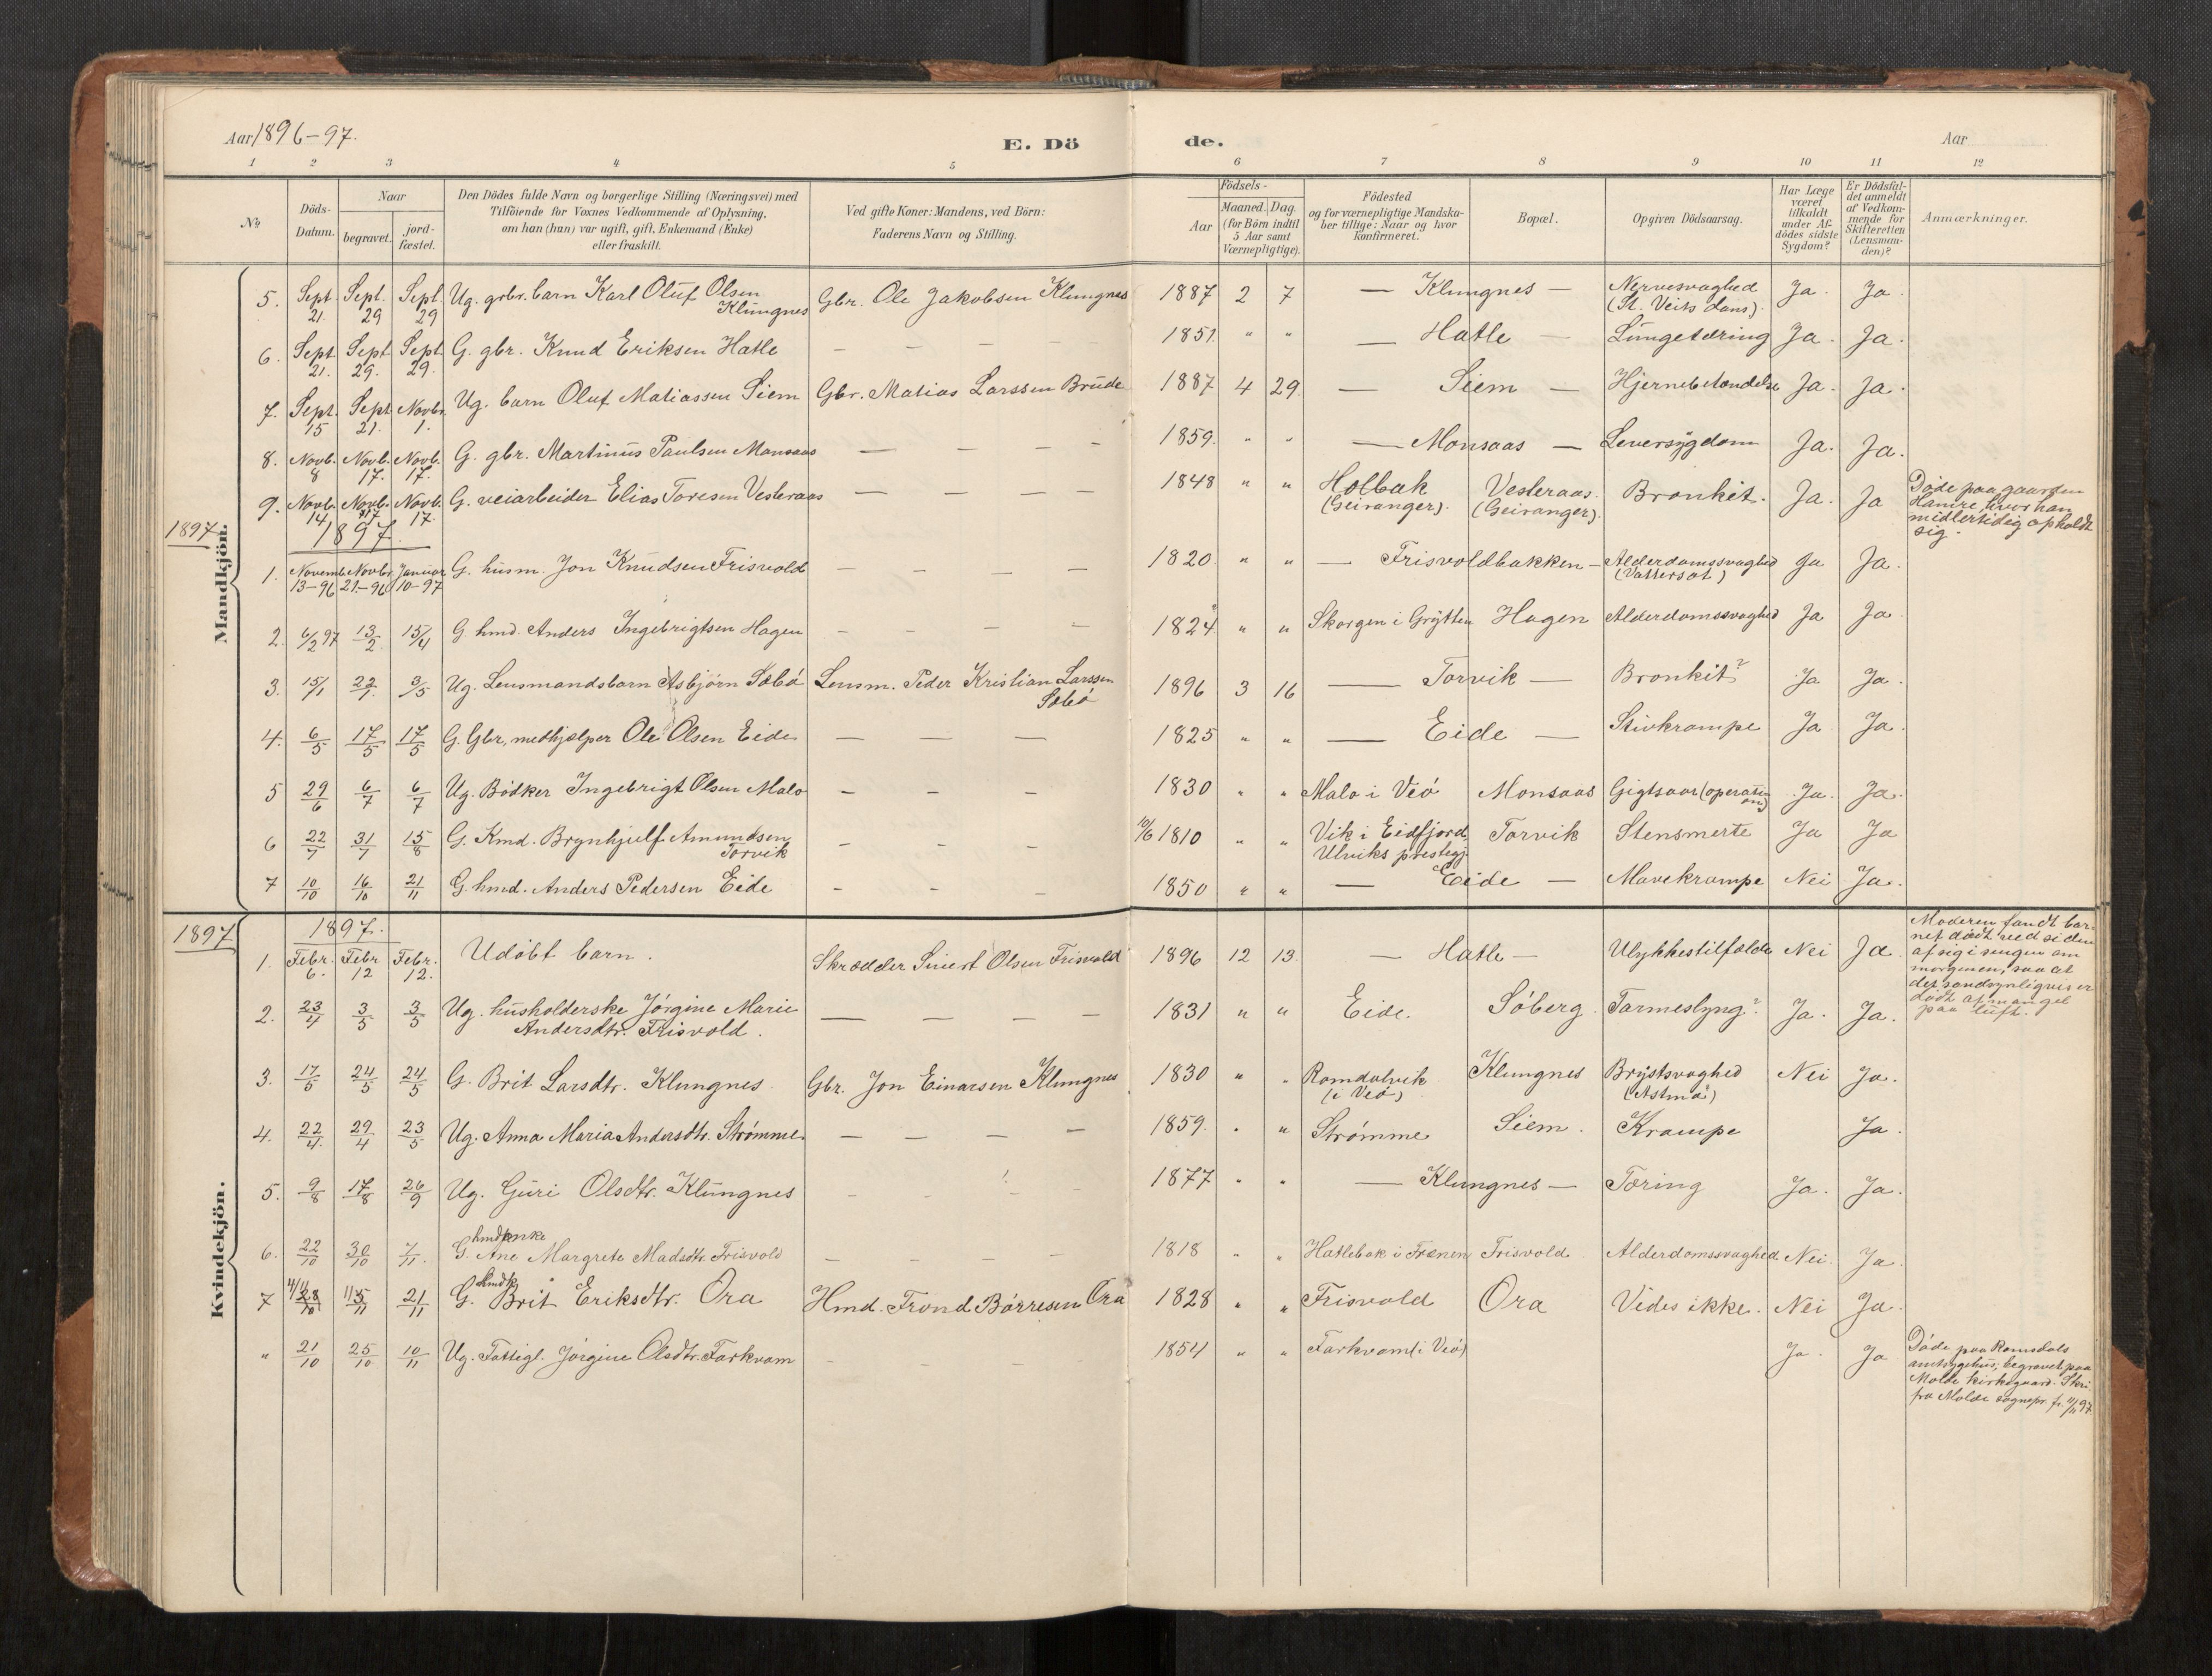 Aar 1896-97.
E. Dö
de.
Aar
1 2 3 4 5 6 7 8 9 10 11 12
No
Döds-
Datum.
Naar
begravet.
jord-
fæstet.
Den Dödes fulde Navn og borgerlige Stilling (Næringsvei) med
Tilföiende for Voxnes Vedkommende af Oplysning,
om han (hun) var ugift, gift, Enkemand (Enke)
eller fraskilt.
Ved gifte Koner: Mandens, ved Börn:
Faderens Navn og Stilling.
Födsels-
Aar
Maaned. Dag.
(for Börn indtil
5 Aar samt
Værnepligtige).
Födested
og for værnepligtige Mandska-
ber tillige: Naar og hvor
konfirmeret.
Bopæl.
Opgiven Dödsaarsag.
Har Læge
været
tilkaldt
under Af-
dödes sidste
Sygdom?
Er Dödsfal-
det anmeldt
af Vedkom-
mende for
Skifteretten
(Lensman-
den)?
Anmærkninger.
Mandkjön.
5. Sept. 21. Sept. 29 Sept. 29 Ug. grbr. barn Karl Oluf Olsen Klungnes Gbr. Ole Jakobsen Klungnes 1887 2 7 — Klungnes — Nervesvaghed (St. Veits dans). Ja. Ja.
6. Sept. 21. Sept. 29. Sept. 29. G. gbr. Knud Eriksen Hatle — — — — 1851. " " — Hatle — Lungetæring Ja. Ja.
7. Sept. 15 Sept. 21. Novbr. 1. Ug. barn Oluf Matiassen Siem Gbr. Matias Larssen Brude 1887 4 29 — Siem — Hjernebetændelse Ja. Ja.
8. Novb. 8 Novb. 17. Novb. 17. G. gbr. Martinus Paulsen Monsaas — — — — 1859. " " — Monsaas — Leversygdom Ja. Ja.
9. Novb. 14 Novb. 17 Novb. 17. G. veiarbeider Elias Toresen Vesteraas — — — — 1848 " " Holbak (Geiranger). Vesteraas. (Geiranger). Bronkit. Ja. Ja Døde paa gaarden
Hamre hvor han
midlertidig opholdt
sig.
1897.
1897.
1. Novemb. 13-96 Novbr. 21.-96 Januar 10-97 G. husm. Jon Knudsen Frisvold — — — — 1820. " " — Frisvoldbakken — Alderdomssvaghed (Vattersot) Ja Ja.
2. 6/2 97 13/2 15/4 G. hmd. Anders Ingebrigtsen Hagen — — — — 1824 " " Skorgen i Grytten Hagen Alderdomssvaghed Ja Ja
3. 15/1 22/1 3/5 Ug. Lensmandsbarn Asbjørn Sæbø Lensm. Peder Kristian Larssen Sæbø 1896 3 16 — Torvik — Bronkit? Ja Ja.
4. 6/5 17/5 17/5 G. Gbr, medhjælper Ole Olsen Eide — — — 1825 " " — Eide — Stivkrampe Ja Ja.
5 29/6 6/7 6/7 Ug. Bødker Ingebrigt Olsen Malo — — — 1830 " " Malo i Veø Monsaas Gigtsaar (operation) Ja. Ja.
6 22/7 31/7 15/8 G. Kmd. Brynhjulf Amundsen Torvik — — — 10/6 1810 " " Vik i Eidfjord Ulviks prestegj. Torvik Stensmerte Ja Ja
7 10/10 16/10 21/11 G. hmd. Anders Pedersen Eide — — — 1850 " " — Eide — Mavekrampe Nei Ja.
1897
1897.
Kvindekjön.
1. Febr. 6. Febr 12 Febr. 12. Udøbt barn. Skrædder Sivert Olsen Frisvold 1896 12 13 — Hatle — Ulykkestilfælde Nei Ja. Moderen fandt bar-
net dødt ved siden
af sig i sengen om
morgenen, saa at
det sandsynligvis er
dødt af mangel
paa luft.
2. 23/4 3/5 3/5 Ug. husholderske Jørgine Marie Andersdtr. Frisvold. — — — — 1831 " " Eide. Søberg Tarmeslyng? Ja. Ja.
3. 17/5 24/5 24/5 G. Brit Larsdtr. Klungnes Gbr. Jon Einarsen Klungnes 1830 " " Romdalvik (i Veø) Klungnes Brystsvaghed (Astma) Nei Ja.
4. 22/4. 29/4 23/5 Ug. Anna Maria Andersdtr. Strømme — — — — 1859. " " Strømme Siem. Krampe Ja.
5. 9/8 17/8 26/9 Ug. Guri Olsdtr. Klungnes — — 1877 " " — Klungnes — Tæring Ja. Ja.
6. 22/10 30/10 7/11. G. hmdenke Ane Margrete Madsdtr. Frisvold — — — 1818 " " Hatlebak i Frænen Frisvold Alderdomssvaghed Nei. Ja.
7 28/10 21/11 G. hmdk. Brit Eriksdtr. Ora Hmd. Trond Børresen Ora 1828 " " Frisvold Ora Vides ikke. Nei Ja.
" 21/10 25/10 10/11 Ug. Fattigl. Jørgine Olsdtr. Farkvam — — — 1854 " " Farkvam (i Veø) Ja. Ja Døde paa Romsdals
amtsygehus, begravet paa
Molde kirkegaard. Skri.
fra Molde sognepr. fr. 11/11 97.